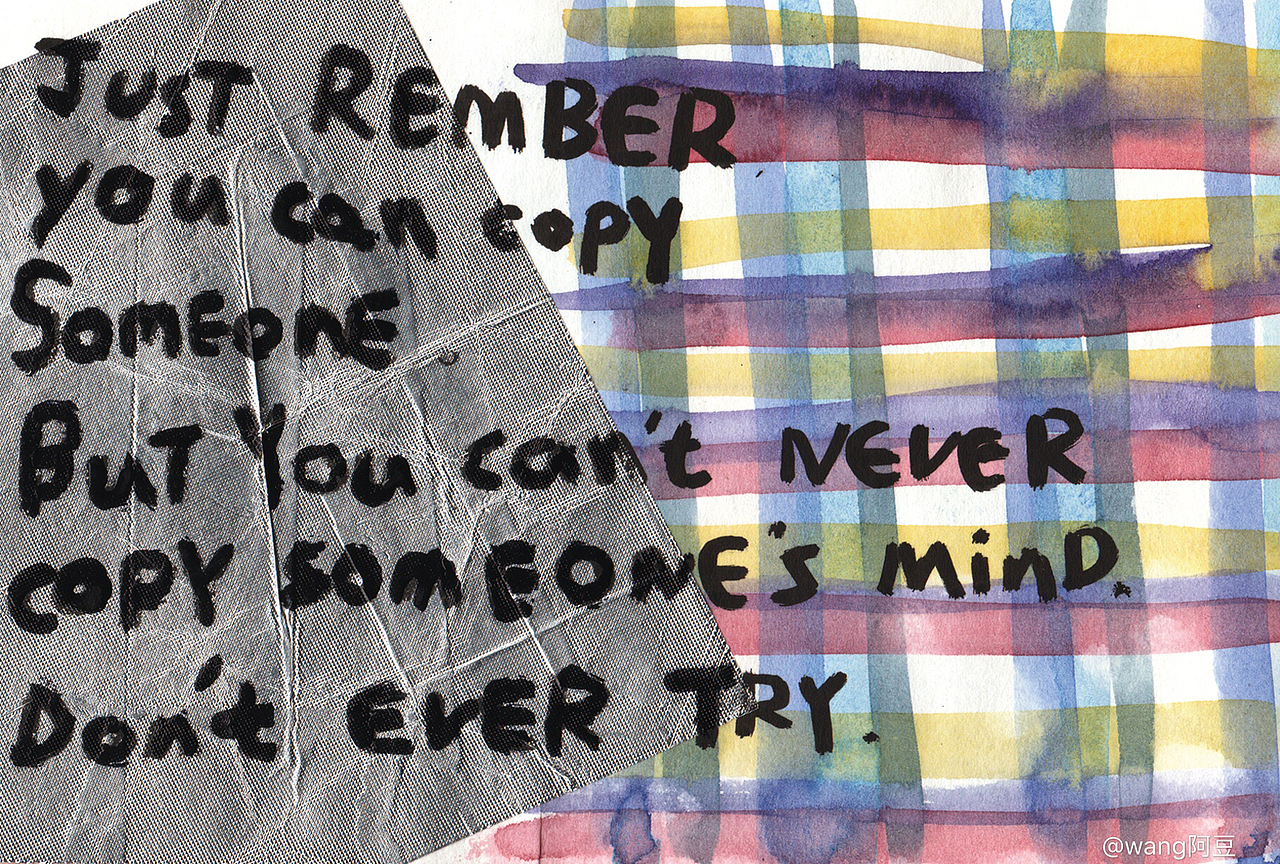 JUST REMBER
you can copy
SomEonE
BuT You can't NEVER
copy somEONE's MinD.
Don't EVER TRY.
@wang阿豆